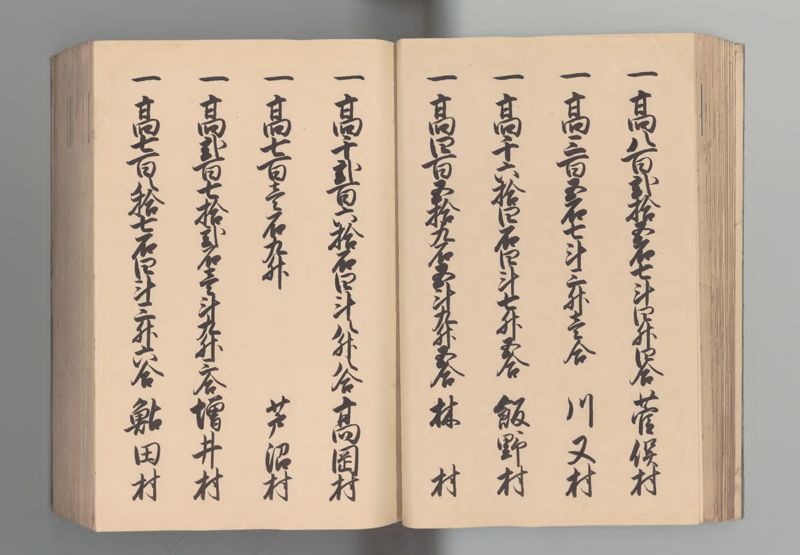 一 高八百弐拾五石七斗四升四合 菅俣村
一 高三百五石七斗三升壱合 川又村
一 高千六拾四石四斗七升五合 飯野村
一 高四百五拾九石五斗九升五合 林村
一 高千弐百六拾石四斗八升八合 高岡村
一 高七百壱石九升 芦沼村
一 高弐百七拾弐石壱斗九升三合 増井村
一 高七百八拾七石四斗三升六合 鮎田村